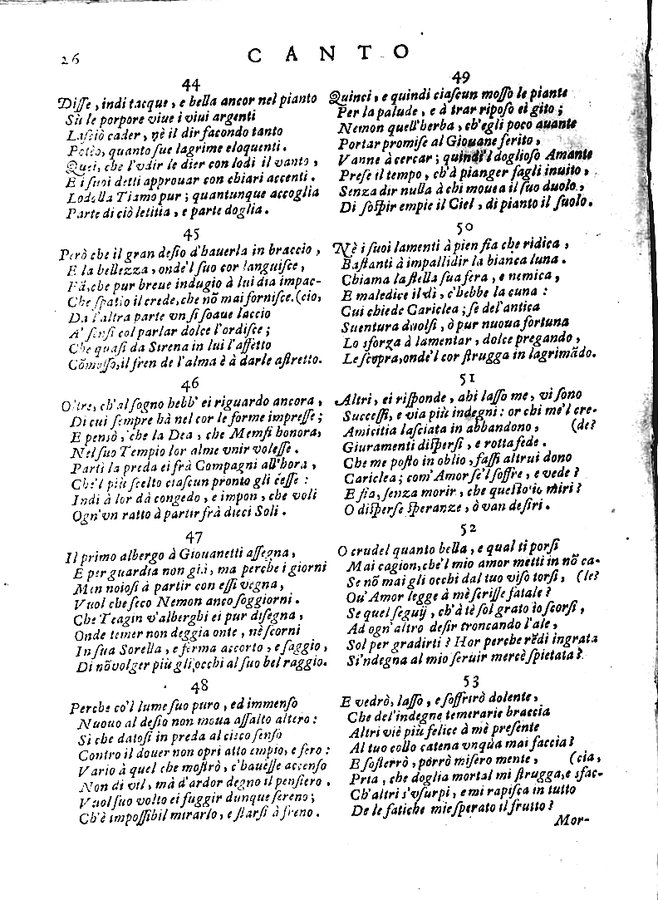 26
CANTO
44
Disse, indi tacque, e bella ancor nel pianto
Sù le porpore viue i viui argenti
Lasciò cader, nè il dir facondo tanto
Potèo, quanto sue lagrime eloquenti.
Quei, che l'vdir le dier con lodi il vanto,
E i suoi detti approuar con chiari accenti.
Lodolla Tiamo pur; quantunque accoglia
Parte di ciò letitia, e parte doglia.
45
Però che il gran desio d'hauerla in braccio,
E la bellezza, onde'l suo cor languisce,
Fà, che pur breue indugio à lui dia impac-
Che spatio il crede, che nõ mai fornisce. (cio,
Da l'altra parte vn sì soaue laccio
A' sensi col parlar dolce l'ordisce;
Che quasi da Sirena in lui l'affetto
Cõmosso, il fren de l'alma è à darle astretto.
46
Oltre, ch'al sogno hebb' ei riguardo ancora,
Di cui sempre hà nel cor le forme impresse;
E pensò, che la Dea, che Memfi honora,
Nel suo Tempio lor alme vnir volesse.
Partì la preda ei frà Compagni all'hora,
Che'l più scelto ciascun pronto gli cesse:
Indi à lor dà congedo, e impon, che voli
Ogn'vn ratto à partir frà dieci Soli.
47
Il primo albergo à Giouanetti assegna,
E per guardia non già, ma perche i giorni
Men noiosi à partir con essi vegna,
Vuol che seco Nemon anco soggiorni.
Che Teagin v'alberghi ei pur disegna,
Onde temer non deggia onte, nè scorni
In sua Sorella, e ferma accorto, e saggio,
Di nõ volger più gli occhi al suo bel raggio.
48
Perche co'l lume suo puro, ed immenso
Nuouo al desio non moua assalto altero:
Sì che datosi in preda al cieco senso
Contro il douer non opri atto empio, e fero:
Vario à quel che mostrò, c'hauesse accenso
Non di vil, mà d'ardor degno il pensiero.
Vuol suo volto ei fuggir dunque sereno;
Ch'è impossibil mirarlo, e starsi à freno.
49
Quinci, e quindi ciascun mosso le piante
Per la palude, e à trar riposo ei gito;
Nemon quell'herba, ch'egli poco auante
Portar promise al Giouane ferito,
Vanne à cercar; quindi'l doglioso Amante
Prese il tempo, ch'à pianger fagli inuito,
Senza dir nulla à chi mouea il suo duolo,
Di sospir empie il Ciel, di pianto il suolo.
50
Nè i suoi lamenti à pien fia che ridica,
Bastanti à impallidir la bianca luna.
Chiama la stella sua fera, e nemica,
E maledice il dì, c'hebbe la cuna:
Cui chiede Cariclea; se de l'antica
Suentura duolsi, ò pur nuoua fortuna
Lo sforza à lamentar, dolce pregando,
Le scopra, onde'l cor strugga in lagrimãdo.
51
Altri, ei risponde, ahi lasso me, vi sono
Successi, e via più indegni: or chi me'l cre-
Amicitia lasciata in abbandono, (de?
Giuramenti dispersi, e rotta fede.
Che me posto in oblio, fassi altrui dono
Cariclea; com' Amor se'l soffre, e vede?
E fia, senza morir, che questo io miri?
O disperse speranze, ò van desiri.
52
O crudel quanto bella, e qual ti porsi
Mai cagion, che'l mio amor metti in nõ ca-
Se nõ mai gli occhi dal tuo viso torsi, (le?
Ou' Amor legge à mè scrisse fatale?
Se quel seguij, ch'à tè sol grato io scorsi,
Ad ogn'altro desir troncando l'ale,
Sol per gradirti? Hor perche rẽdi ingrata
Sì'ndegna al mio seruir mercè spietata?
53
E vedrò, lasso, e soffrirò dolente,
Che del'indegne temerarie braccia
Altri viè più felice à mè presente
Al tuo collo catena vnqua mai faccia?
E sosterrò, porrò misero mente, (cia,
Pria, che doglia mortal mi strugga, e sfac-
Ch'altri s'vsurpi, e mi rapisca in tutto
De le fatiche mie sperato il frutto?
Mor-